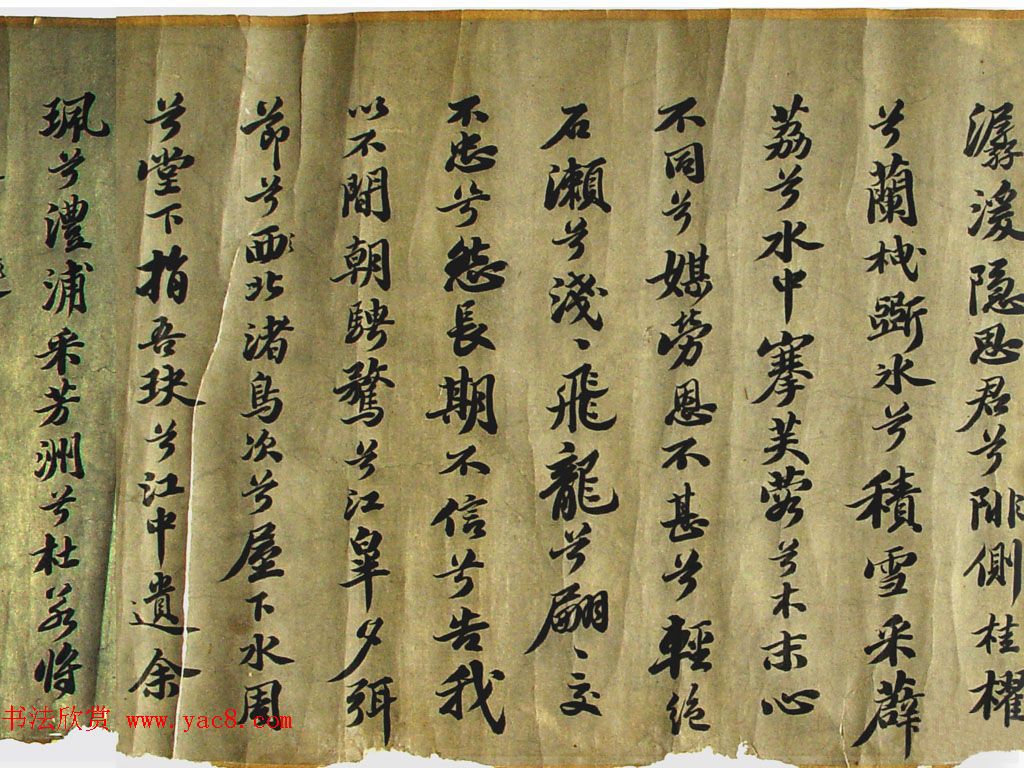 潺湲隐思君兮陫側桂櫂
兮蘭枻斲冰兮積雪采薜
荔兮水中搴芙蓉兮木末心
不同兮媒勞恩不甚兮輕絕
石瀨兮淺〻飛龍兮翩〻交
不忠兮怨長期不信兮告我
以不閒朝騁騖兮江皋夕弭
節兮北渚鳥次兮屋下水周
兮堂下捐吾玦兮江中遺余
珮兮澧浦采芳洲兮杜若將
书法欣赏 www.yac8.com